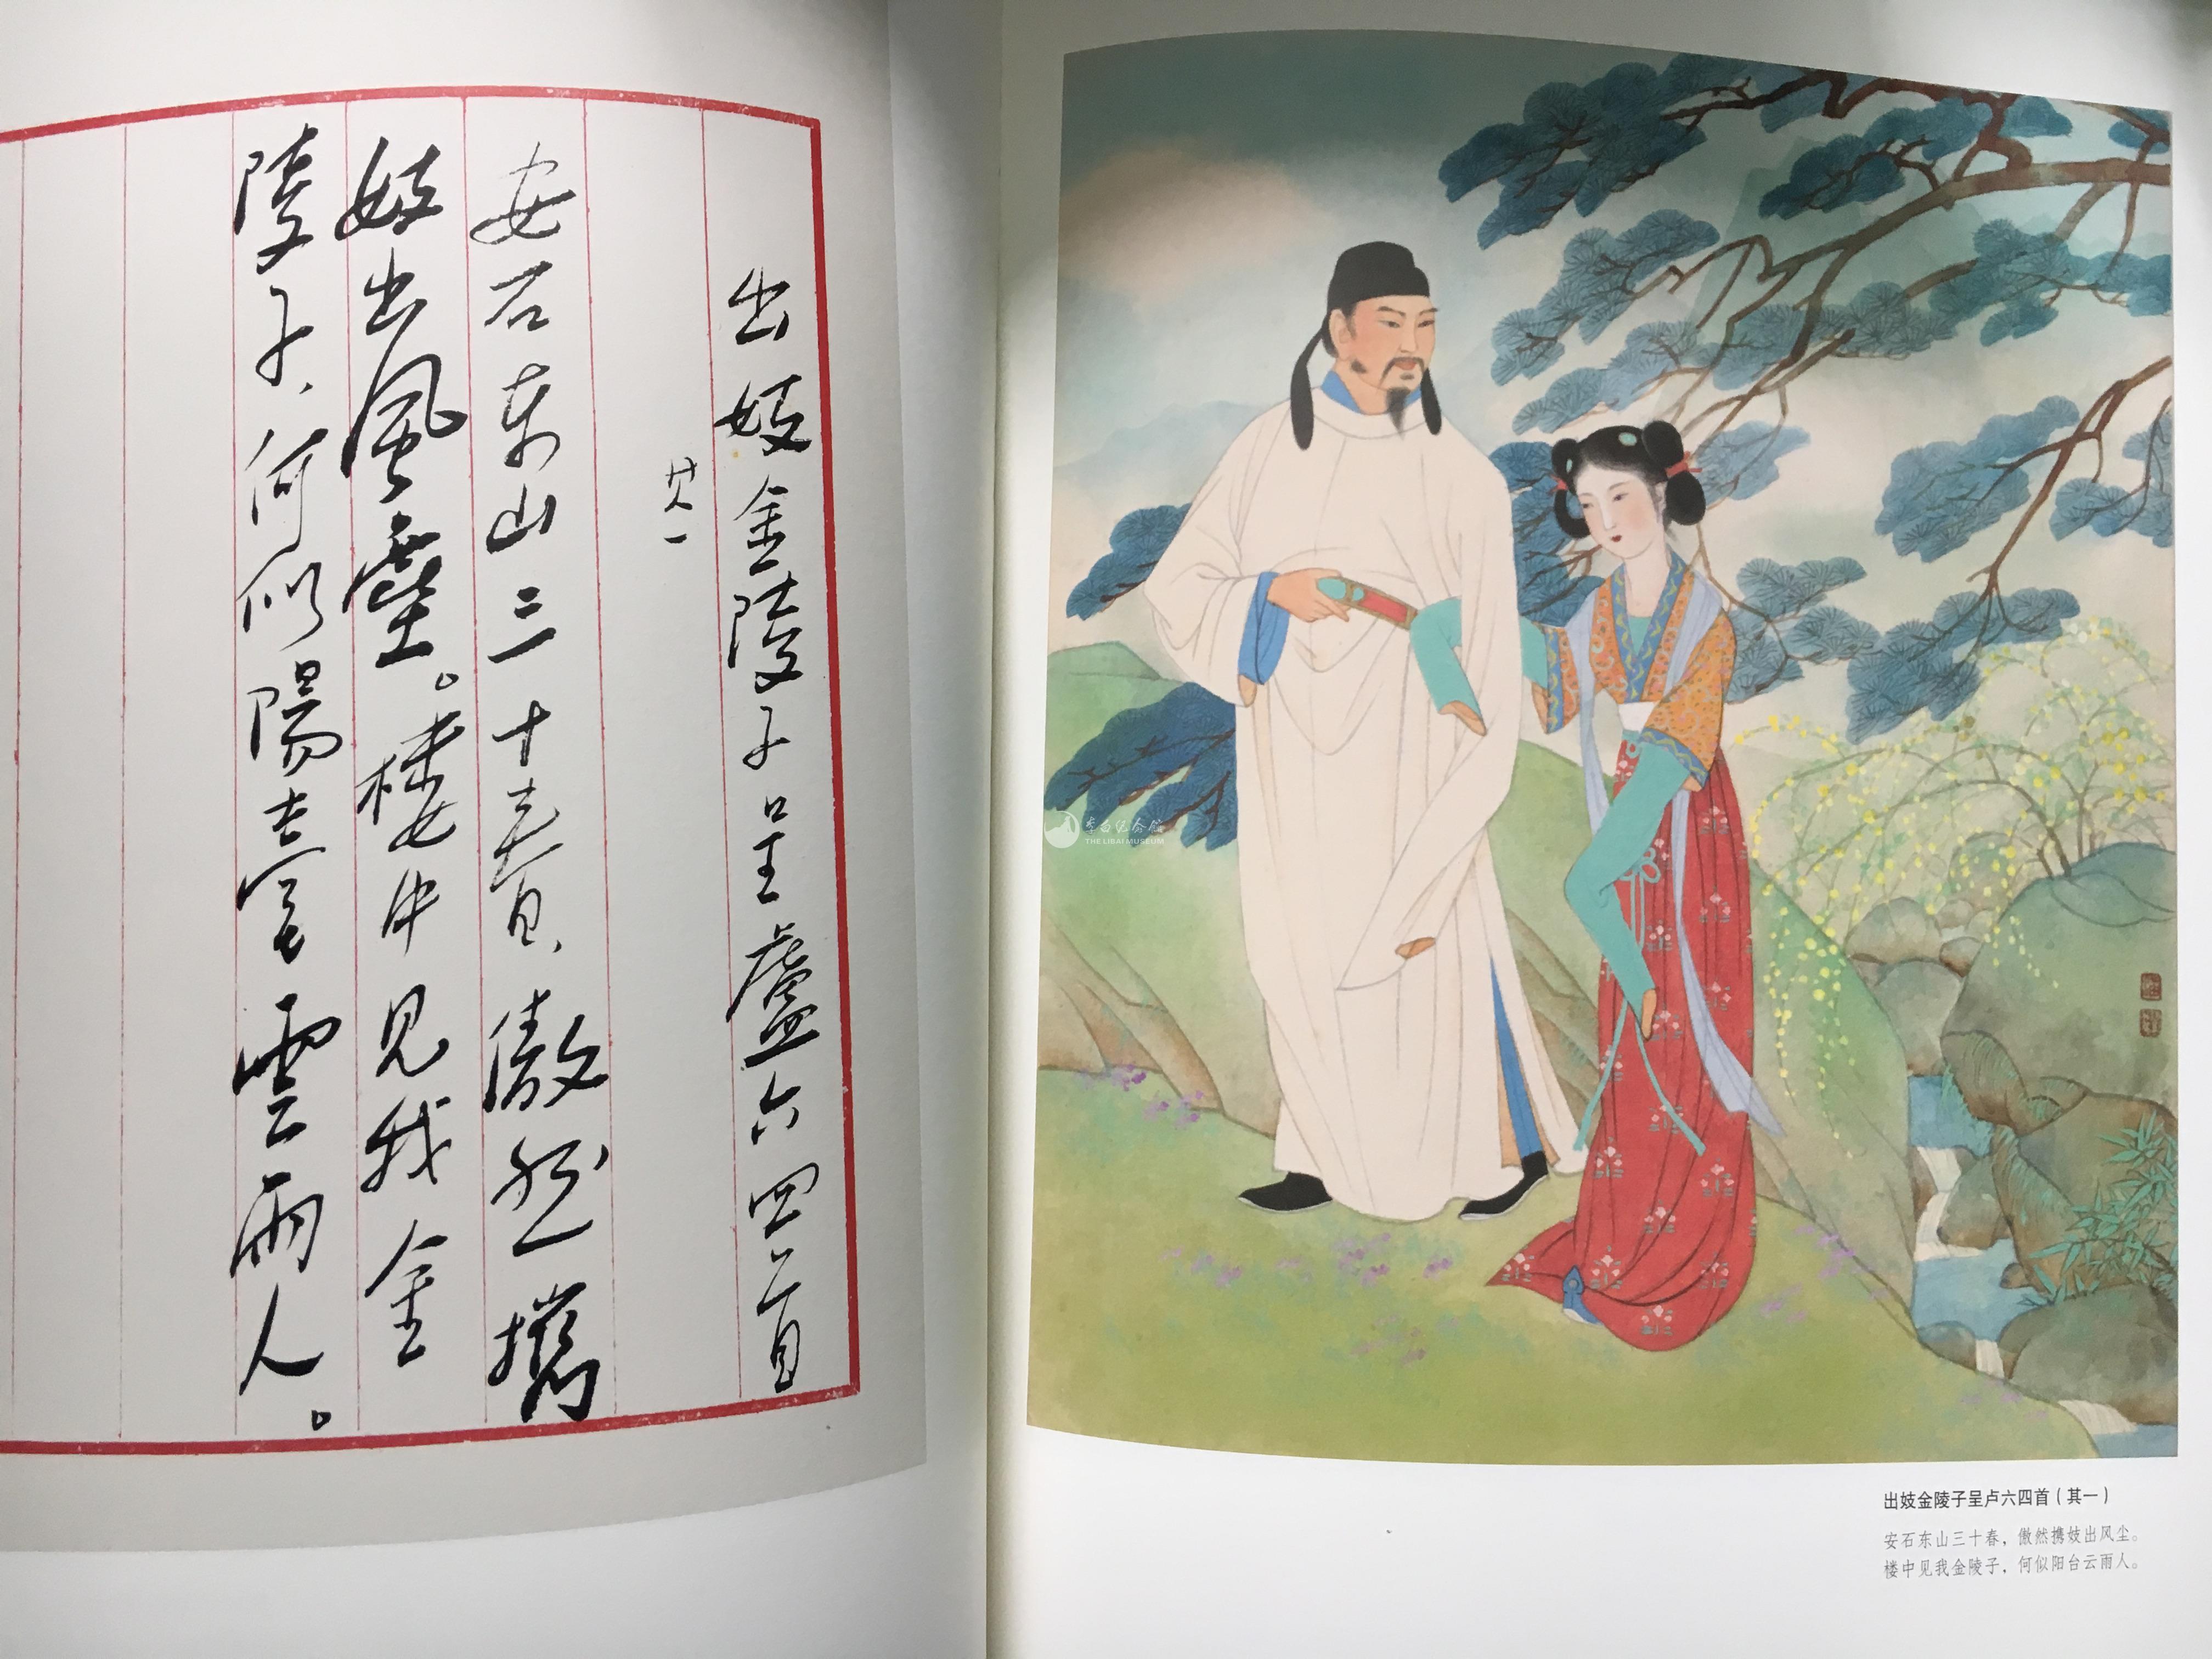 出妓金陵子呈盧六四首
其一
安石东山三十春，傲然攜
妓出風塵。楼中見我金
陵子，何似陽臺雲雨人。
李白纪念馆
THE LIBAI MUSEUM
出妓金陵子呈卢六四首（其一）
安石东山三十春，傲然携妓出风尘。
楼中见我金陵子，何似阳台云雨人。